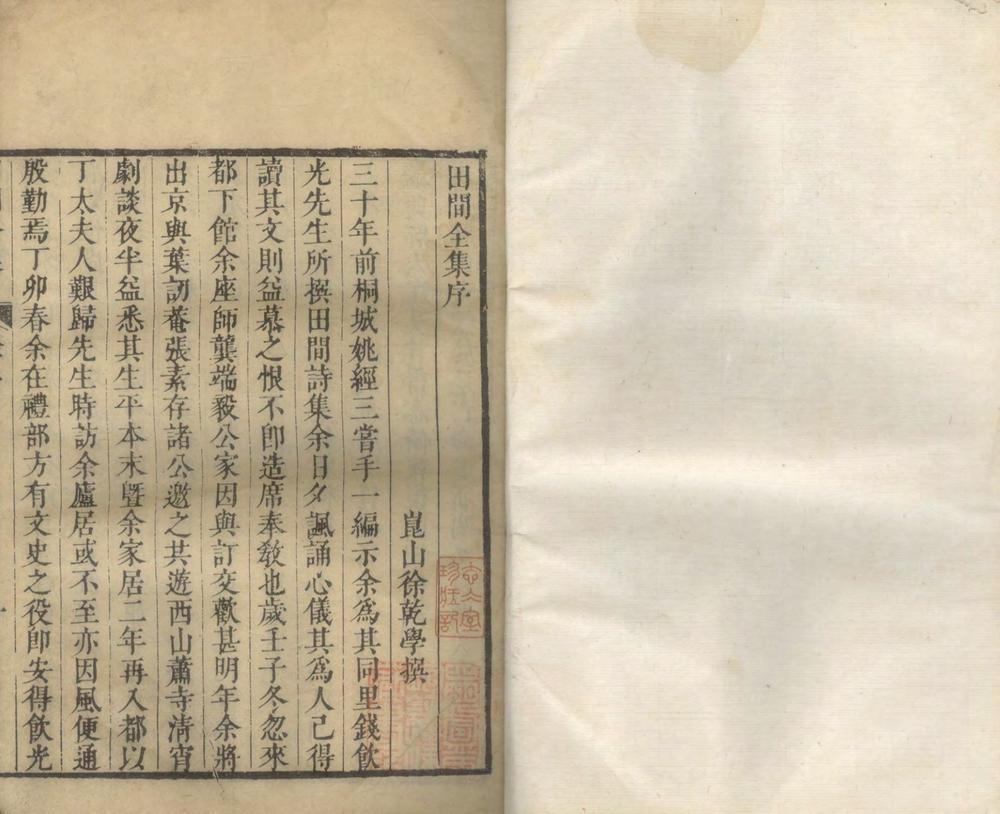 田間全集序
崑山徐乾學撰
三十年前桐城姚經三嘗手一編示余爲其同里錢飲
光先生所撰田間詩集余日夕諷誦心儀其爲人已得
讀其文則益慕之恨不卽造席奉敎也歲壬子冬忽來
都下館余座師龔端毅公家因與訂交歡甚明年余將
出京與葉訒菴張素存諸公邀之共遊西山蕭寺淸宵
劇談夜半益悉其生平本末曁余家居二年再入都以
丁太夫人艱歸先生時訪余廬居或不至亦因風便通
殷勤焉丁卯春余在禮部方有文史之役卽安得飲光